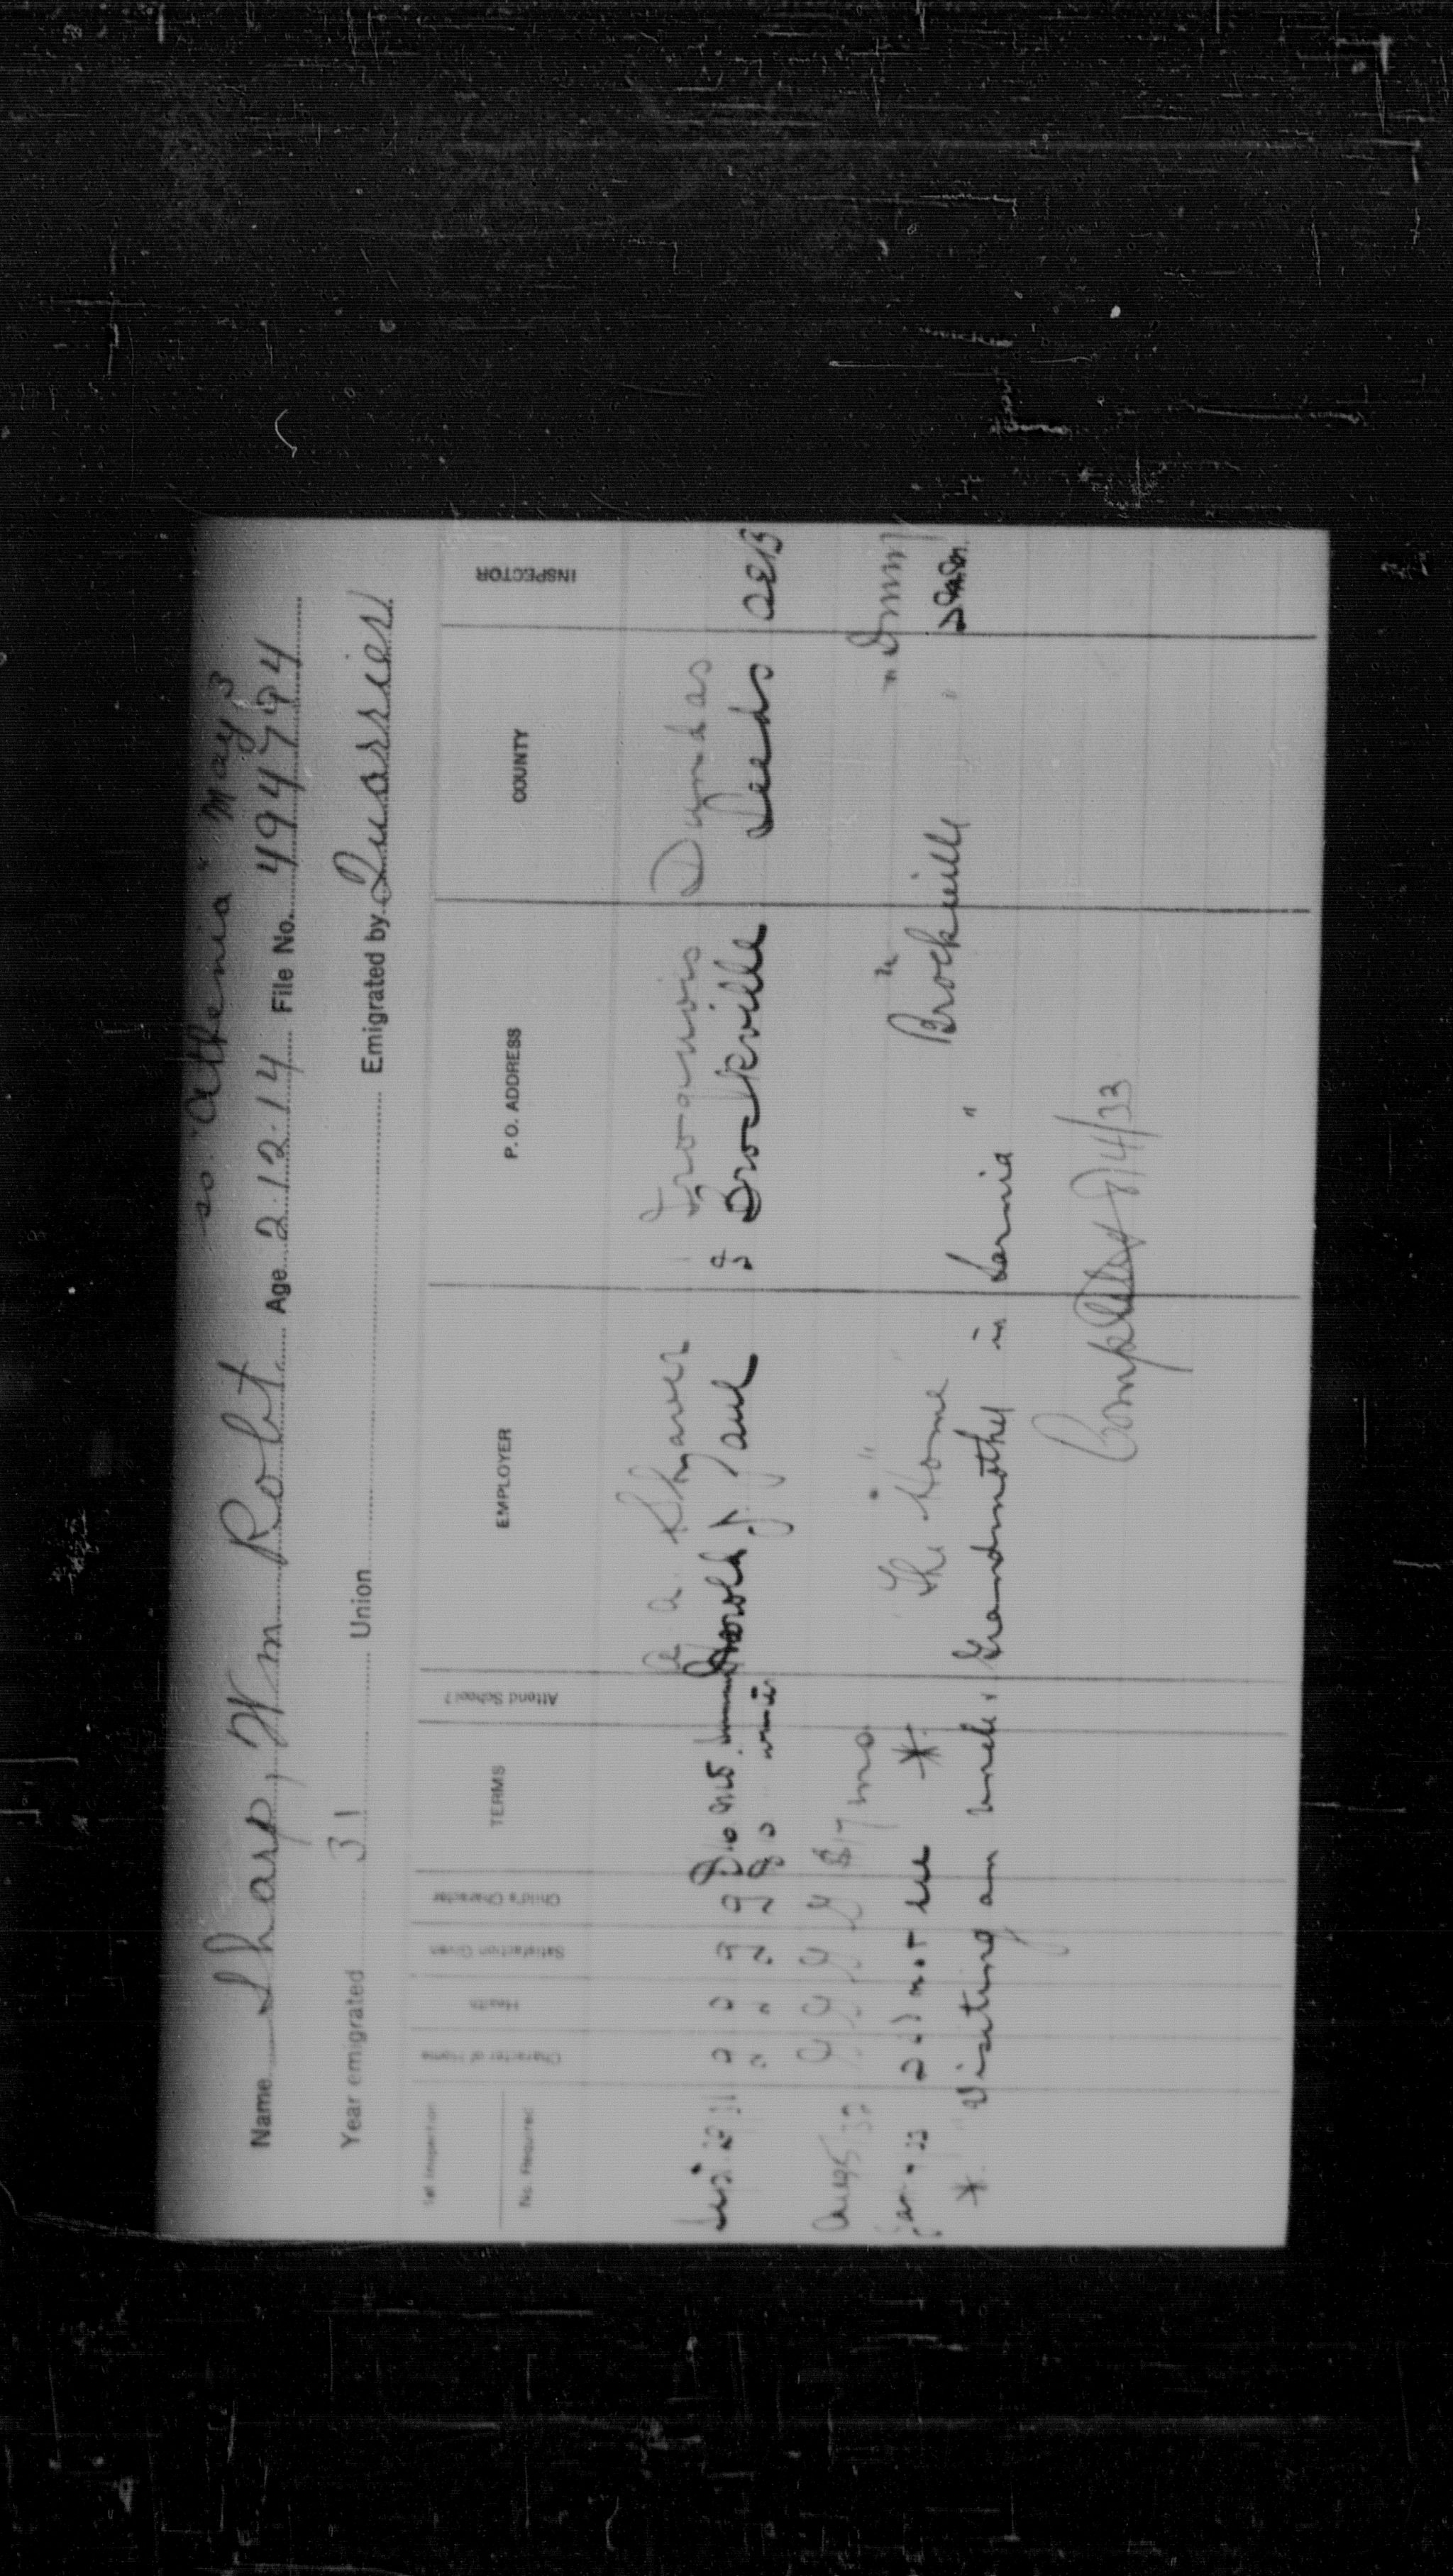 ss. "Athenia" May 3
Name Sharp, Wm Robt. Age 2.12.14 File No. 494794
Year emigrated 31 Union Emigrated by Quarrier
1st Inspection
No. Required
Character of Home
Health
Satisfaction Given
Child's Character
TERMS
Attend School?
EMPLOYER
P. O. ADDRESS
COUNTY
INSPECTOR
A. A. Shaver Iroquois Dundas
31 g g g g Harold J. Brockville Leeds OEB
Aug 5/32 G G G G $17 mo " " " "
Jan 33 did not see * The Home Brockville "
* Visiting an uncle & Grandmother in Sarnia "
Completed 14/33